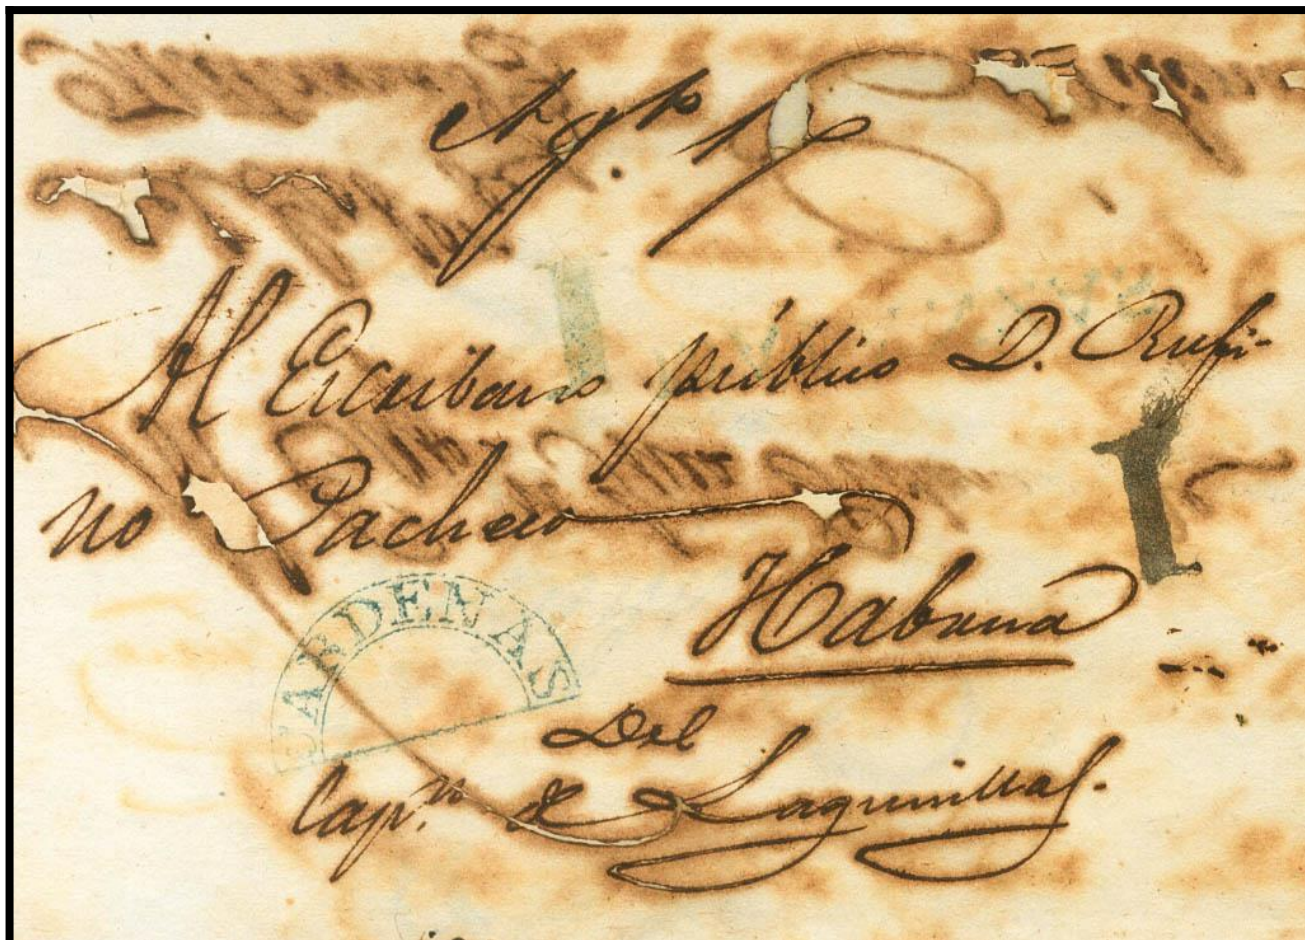 Al Escribano público D. Rufi-
no Pacheco
Habana
CARDENAS
Del
Cap.n de Lagunillas.